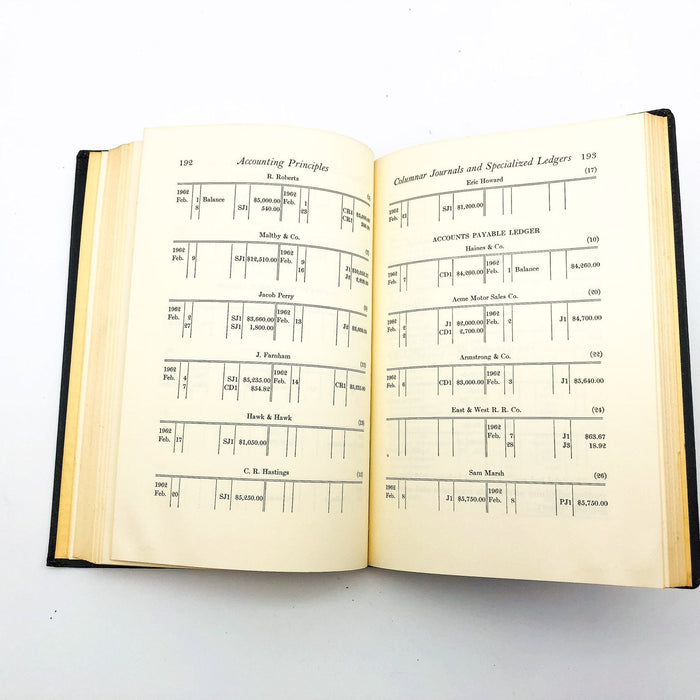 192 Accounting Principles
R. Roberts
1962 1962
Feb. 1 Balance $5,000.00 Feb. 1 CR1
8 SJ1 540.00 23 CR1
Maltby & Co.
1962 1962
Feb. 9 SJ1 $12,510.00 Feb. 9 J1
16 J2
Jacob Perry
1962 1962
Feb. 2 SJ1 $3,660.00 Feb. 13 J2
27 SJ1 1,800.00
J. Farnham
1962 1962
Feb. 4 SJ1 $5,235.00 Feb. 14 CR1
7 CD1 $54.82
Hawk & Hawk
1962
Feb. 17 SJ1 $1,050.00
C. R. Hastings
1962
Feb. 20 SJ1 $5,250.00
Columnar Journals and Specialized Ledgers 193
Eric Howard (17)
1962
Feb. 21 SJ1 $1,200.00
ACCOUNTS PAYABLE LEDGER
Haines & Co. (10)
1962 1962
Feb. 7 CD1 $4,260.00 Feb. 1 Balance $4,260.00
Acme Motor Sales Co. (20)
1962 1962
Feb. 2 J1 $2,000.00 Feb. 2 J1 $4,700.00
2 CD1 2,700.00
Armstrong & Co. (22)
1962 1962
Feb. 6 CD1 $3,000.00 Feb. 3 J1 $5,640.00
East & West R. R. Co. (24)
1962
Feb. 7 J1 $63.67
28 J3 18.92
Sam Marsh (26)
1962 1962
Feb. 8 J1 $5,750.00 Feb. 8 PJ1 $5,750.00